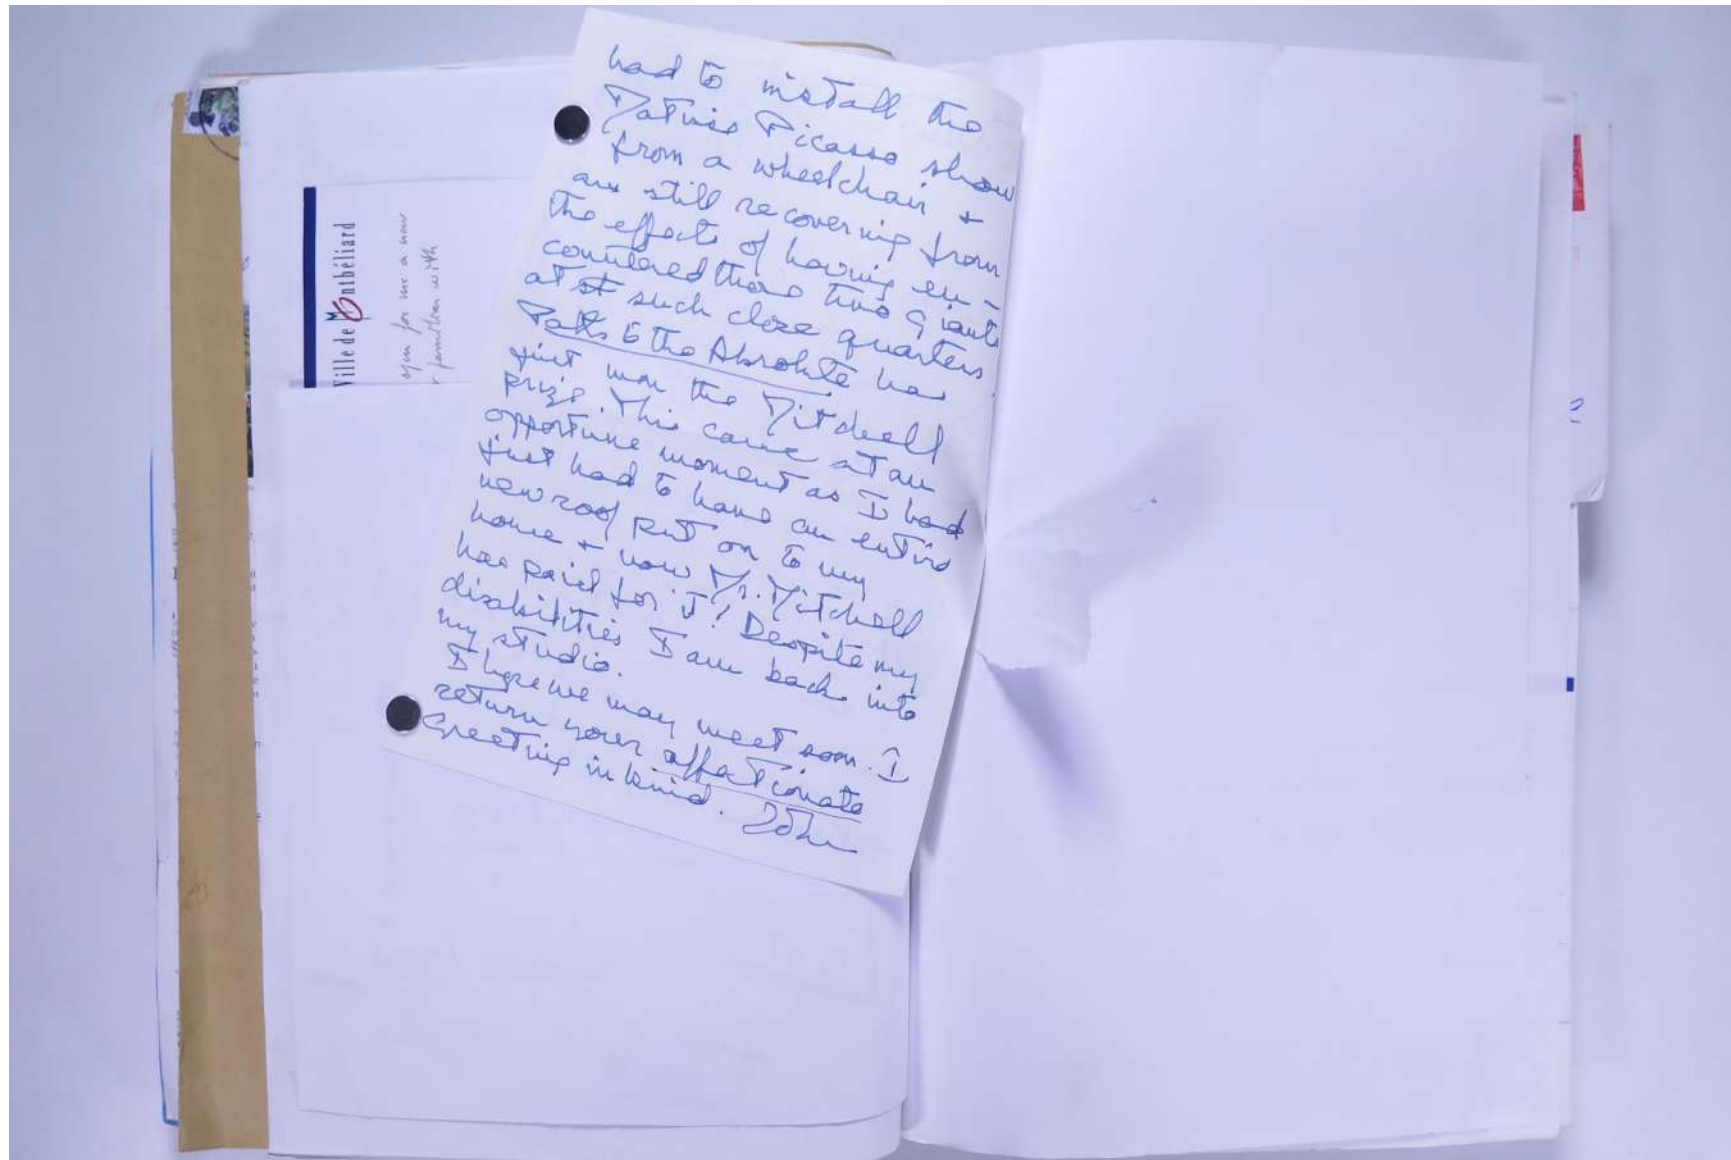 had to install the
Matisse Picasso show
from a wheelchair +
am still recovering from
the effects of having en-
countered those two giants
at st such close quarters
Paths to the Absolute has
just won the Mitchell
prize This came at an
opportune moment as I had
just had to have an entire
new roof put on to my
home + now Mr. Mitchell
has paid for it! Despite my
disabilities I am back into
my studio.
I hope we may meet soon. I
return your affectionate
greeting in kind. John
Ville de Montbéliard
open for me a now
familiar with